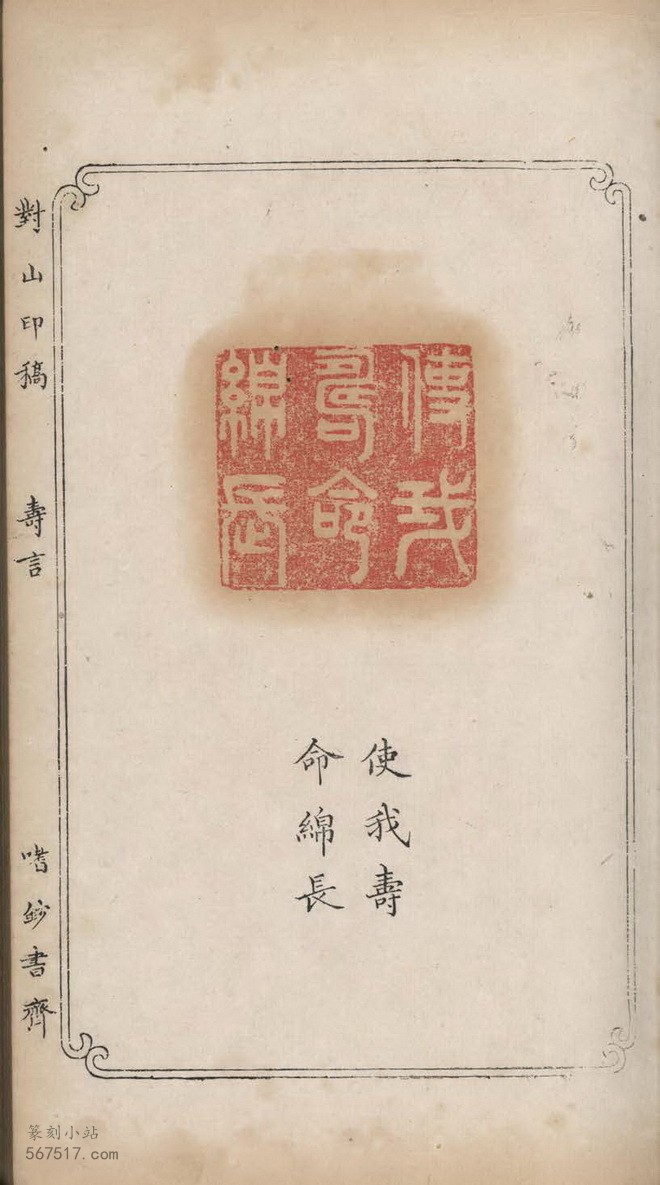 使我
壽命
綿長
使我壽
命綿長
對山印稿 壽言
嗜鈔書齊
篆刻小站
567517.com